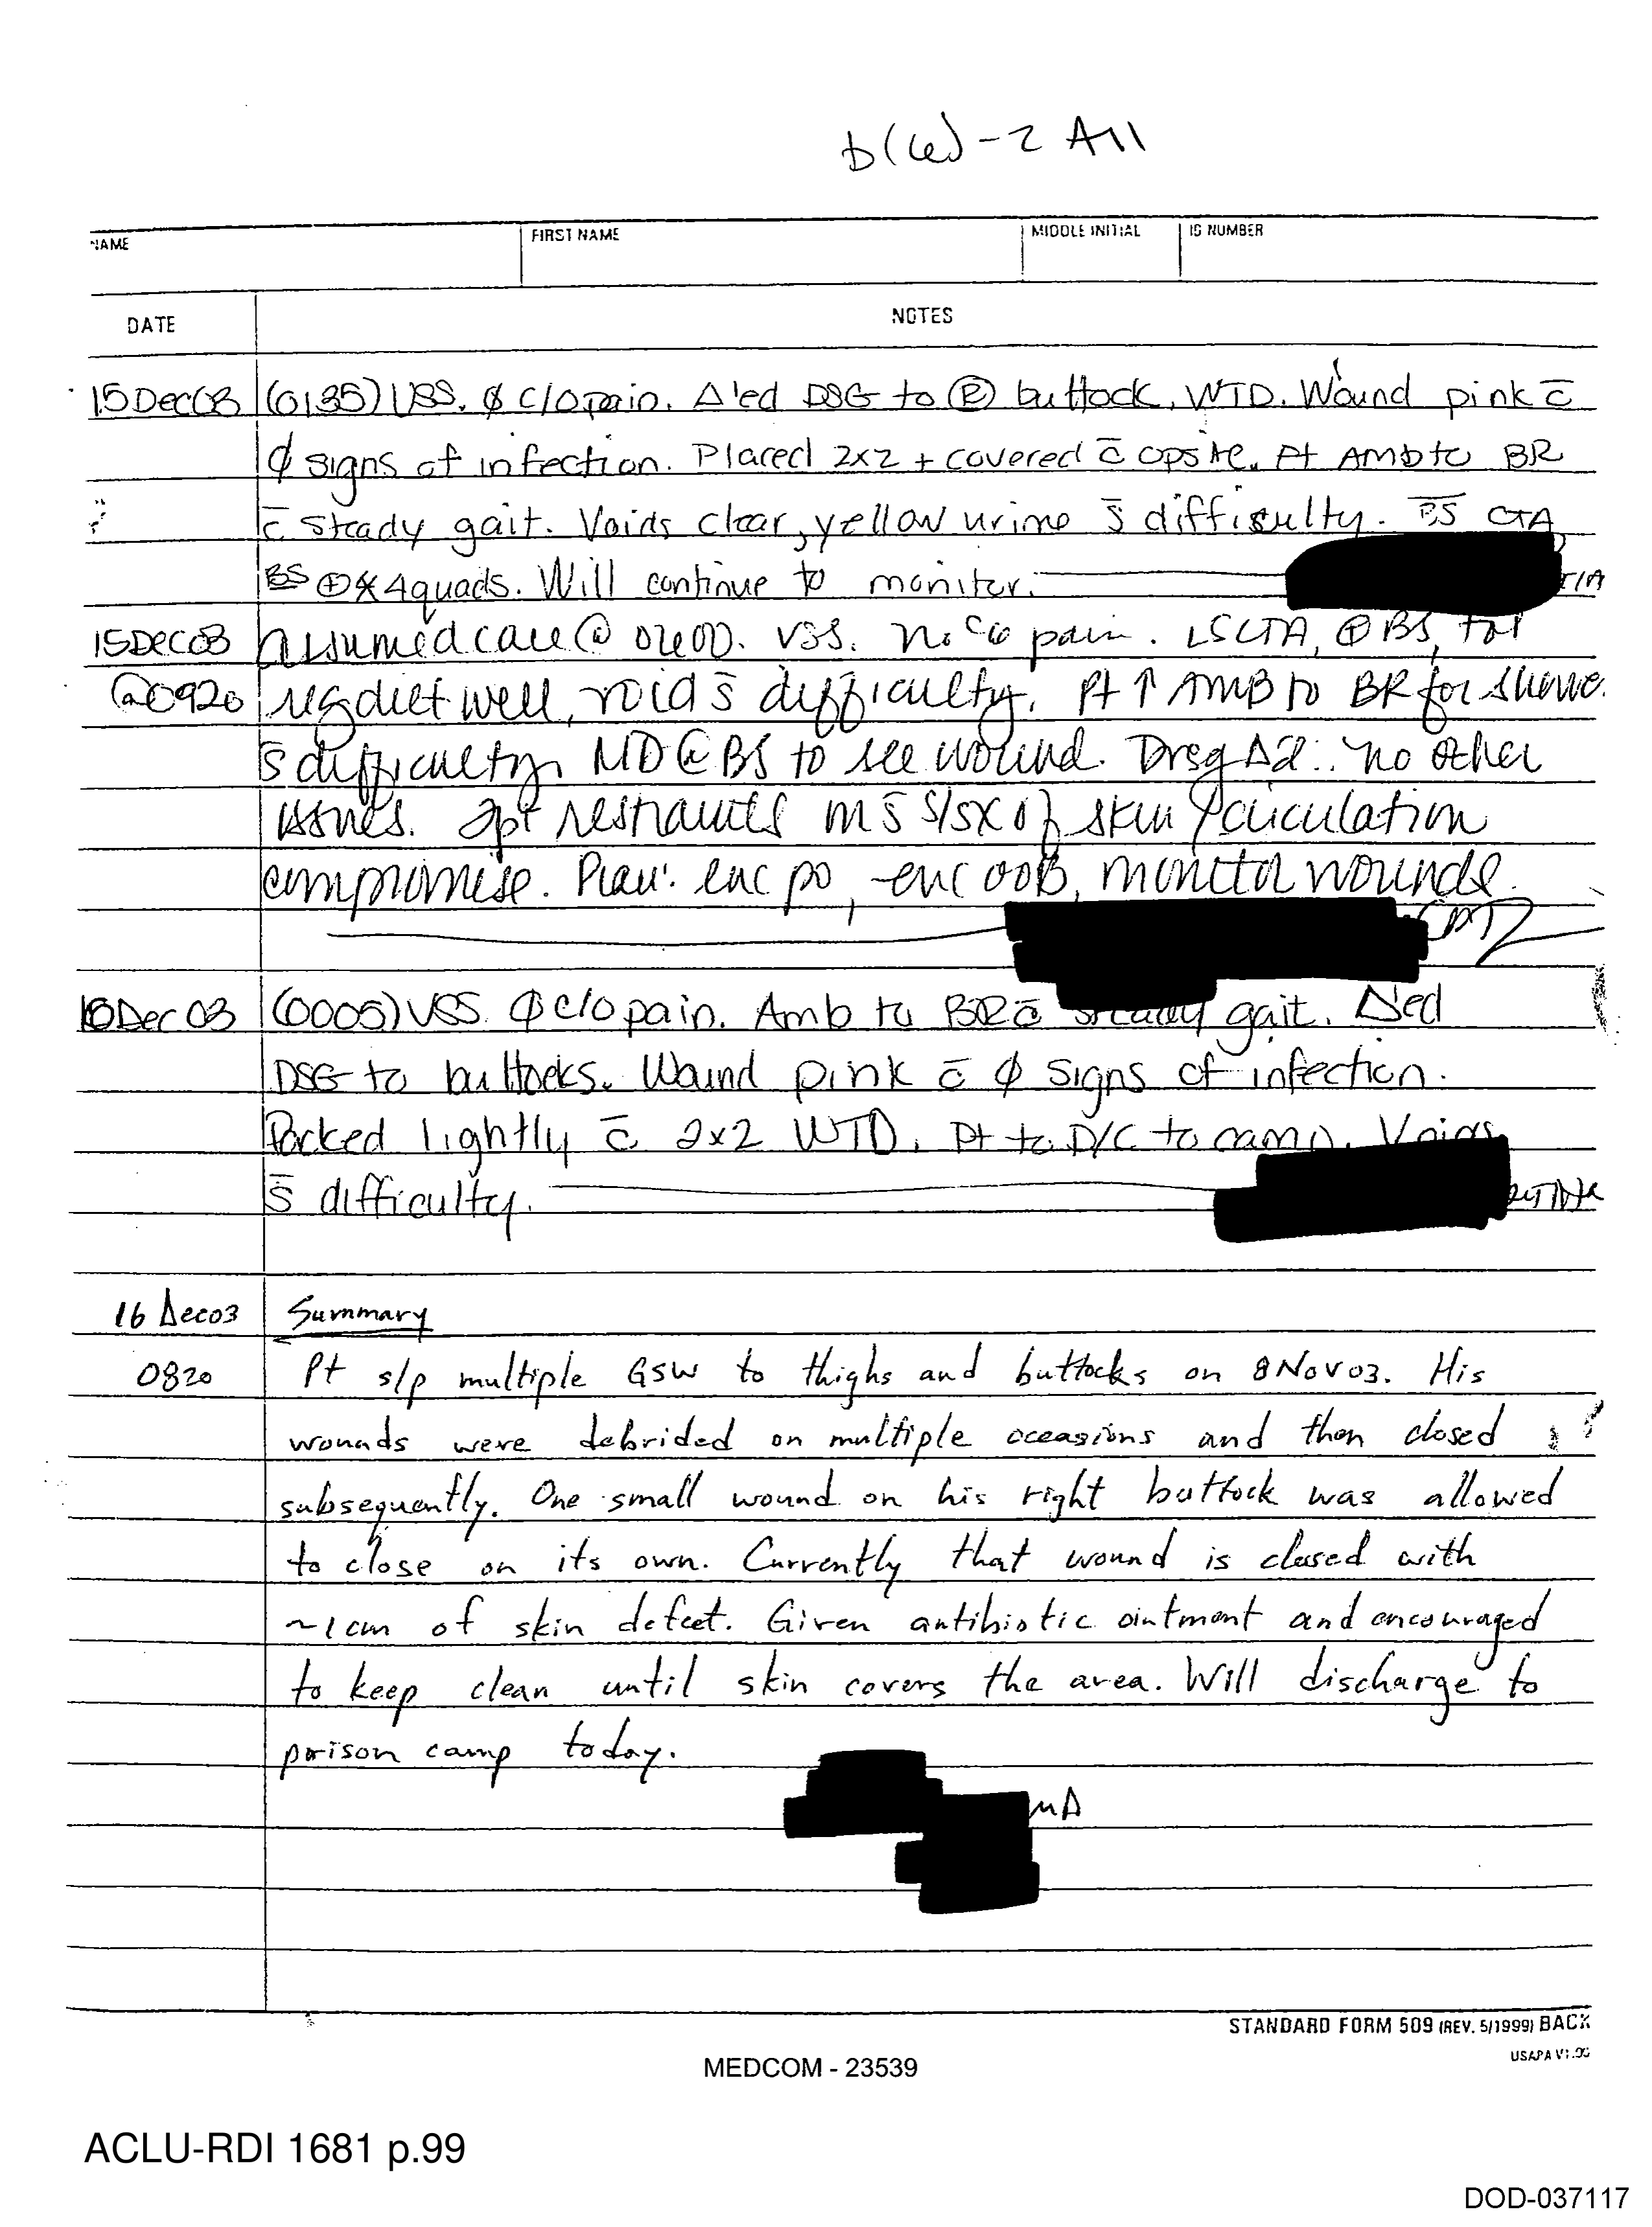 b(6)-2 All
NAME FIRST NAME MIDDLE INITIAL ID NUMBER
DATE NOTES
15Dec03 (0135) VSS. ∅ c/o pain. Δ'ed DSG to Ⓡ buttock, WTD. Wound pink c̄
∅ signs of infection. Placed 2x2 + covered c̄ opsite. Pt Amb to BR
c̄ steady gait. Voids clear, yellow urine s̄ difficulty. BS CTA,
BS ⊕ x 4quads. Will continue to monitor.
15Dec03 Assumed care @ 0600. VSS. No c/o pain. LSCTA, ⊕BS, tol
@0920 reg diet well, void s̄ difficulty. Pt ↑ AMB to BR for shower
s̄ difficulty. MD @ BS to see wound. Drsg Δ'd. No other
issues. 2pt restraints s̄ s/sx of skin / circulation
compromise. Plan: enc po, enc OOB, monitor wounds.
CPT
16Dec03 (0005) VSS. ∅ c/o pain. Amb to BR c̄ steady gait. Δ'ed
DSG to buttocks. Wound pink c̄ ∅ signs of infection.
Packed lightly c̄ 2x2 WTD. Pt to D/C to camp. Voids
s̄ difficulty.
16 Dec03 Summary
0820 Pt s/p multiple GSW to thighs and buttocks on 8Nov03. His
wounds were debrided on multiple occasions and then closed
subsequently. One small wound on his right buttock was allowed
to close on its own. Currently that wound is closed with
~1cm of skin defect. Given antibiotic ointment and encouraged
to keep clean until skin covers the area. Will discharge to
prison camp today.
MD
STANDARD FORM 509 (REV. 5/1999) BACK
USAPA V1.00
MEDCOM - 23539
ACLU-RDI 1681 p.99
DOD-037117